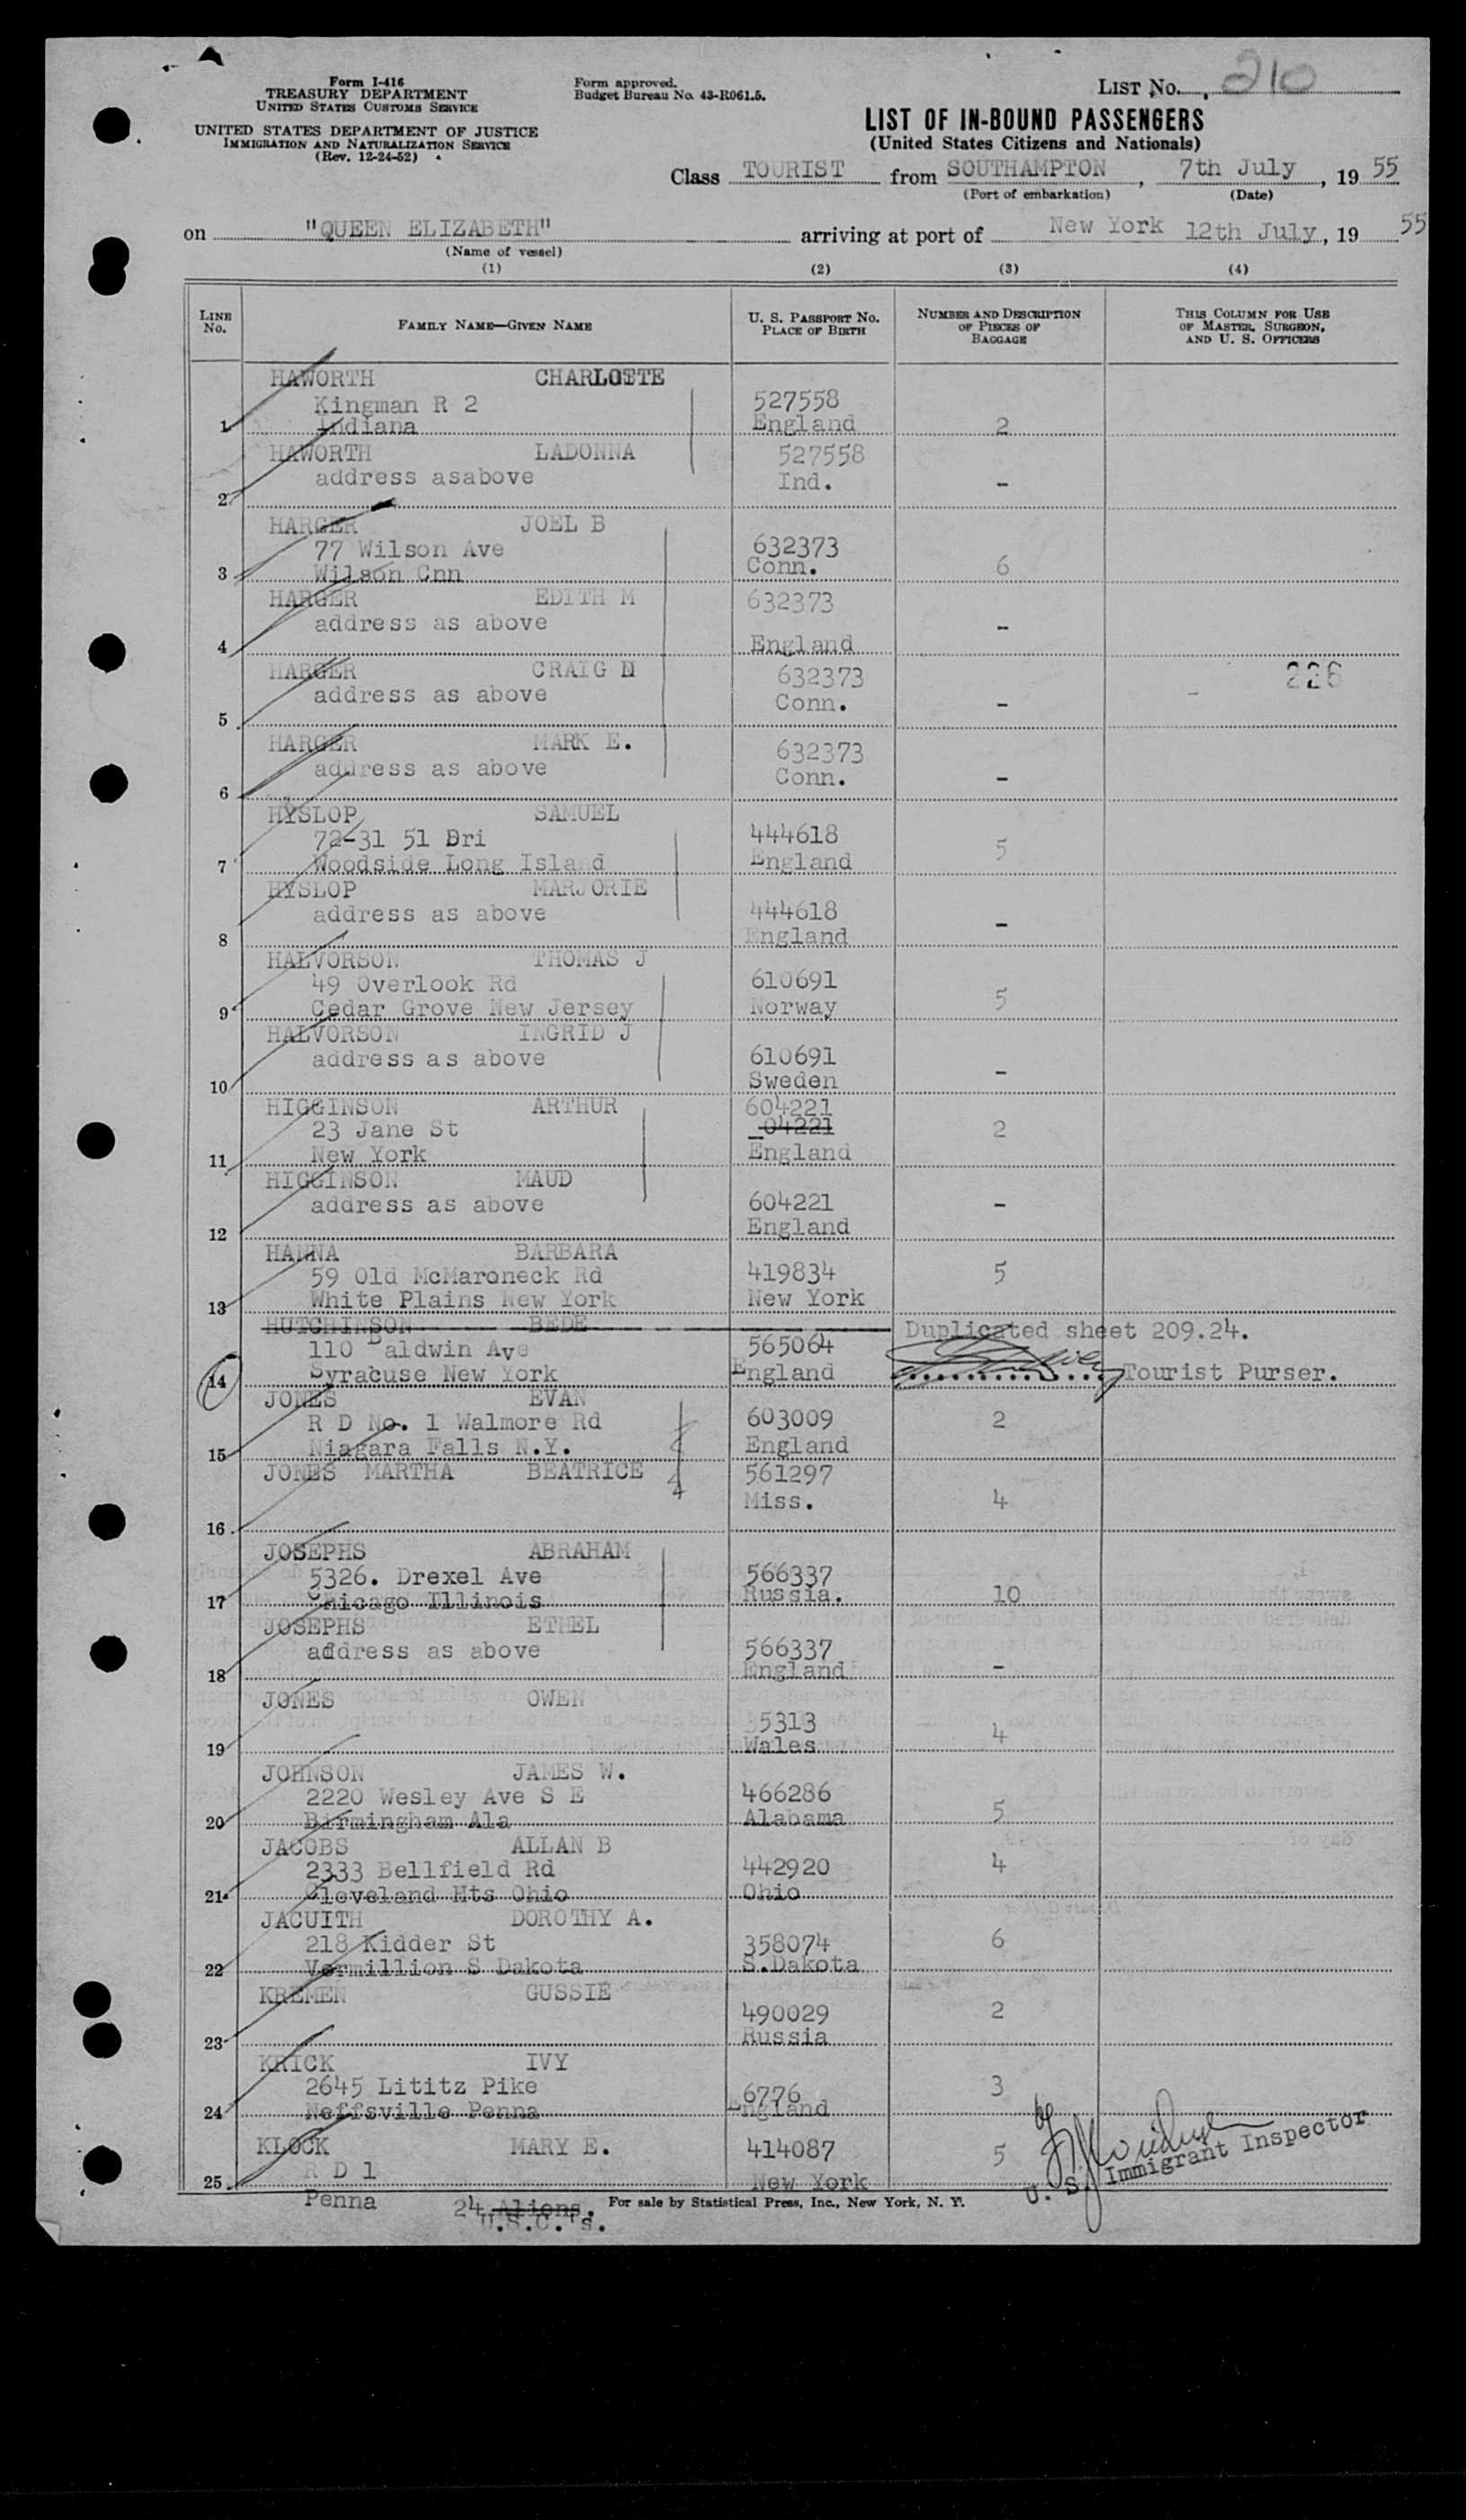 Form I-416
TREASURY DEPARTMENT
UNITED STATES CUSTOMS SERVICE
UNITED STATES DEPARTMENT OF JUSTICE
IMMIGRATION AND NATURALIZATION SERVICE
(Rev. 12-24-52)
Form approved.
Budget Bureau No. 43-R061.5.
LIST No. 210
LIST OF IN-BOUND PASSENGERS
(United States Citizens and Nationals)
Class TOURIST from SOUTHAMPTON, 7th July, 19 55
(Port of embarkation) (Date)
on "QUEEN ELIZABETH" arriving at port of New York 12th July, 19 55
(Name of vessel)
(1) (2) (3) (4)
LINE No. FAMILY NAME—GIVEN NAME U. S. PASSPORT No. PLACE OF BIRTH NUMBER AND DESCRIPTION OF PIECES OF BAGGAGE THIS COLUMN FOR USE OF MASTER, SURGEON, AND U. S. OFFICERS
HAWORTH CHARLOTTE
Kingman R 2 527558
1 Indiana England 2
HAWORTH LADONNA 527558
address asabove Ind. -
2
HARGER JOEL B
77 Wilson Ave 632373
3 Wilson Cnn Conn. 6
HARGER EDITH M 632373
address as above -
4 England
HARGER CRAIG N 632373 226
address as above Conn. -
5
HARGER MARK E. 632373
address as above Conn. -
6
HYSLOP SAMUEL
72-31 51 Dri 444618 5
7 Woodside Long Island England
HYSLOP MARJORIE
address as above 444618 -
8 England
HALVORSON THOMAS J
49 Overlook Rd 610691 5
9 Cedar Grove New Jersey Norway
HALVORSON INGRID J
address as above 610691 -
10 Sweden
HIGGINSON ARTHUR 604221
23 Jane St 04221 2
11 New York England
HIGGINSON MAUD
address as above 604221 -
12 England
HANNA BARBARA
59 Old McMaroneck Rd 419834 5
13 White Plains New York New York
HUTCHINSON BEDE Duplicated sheet 209.24.
110 Baldwin Ave 565064
14 Syracuse New York England Tourist Purser.
JONES EVAN
R D No. 1 Walmore Rd 603009 2
15 Niagara Falls N.Y. England
JONES MARTHA BEATRICE 561297
Miss. 4
16
JOSEPHS ABRAHAM
5326. Drexel Ave 566337
17 Chicago Illinois Russia. 10
JOSEPHS ETHEL
address as above 566337
18 England -
JONES OWEN
5313 4
19 Wales
JOHNSON JAMES W.
2220 Wesley Ave S E 466286
20 Birmingham Ala Alabama 5
JACOBS ALLAN B
2333 Bellfield Rd 442920 4
21 Cleveland Hts Ohio Ohio
JACUITH DOROTHY A.
218 Kidder St 358074 6
22 Vermillion S Dakota S.Dakota
KREMEN GUSSIE
490029 2
23 Russia
KRICK IVY
2645 Lititz Pike 6776 3
24 Neffsville Penna England
KLOCK MARY E. 414087 5
25 R D 1 New York
Penna
24 Aliens.
U.S.C.'s.
For sale by Statistical Press, Inc., New York, N. Y.
U. S. Immigrant Inspector